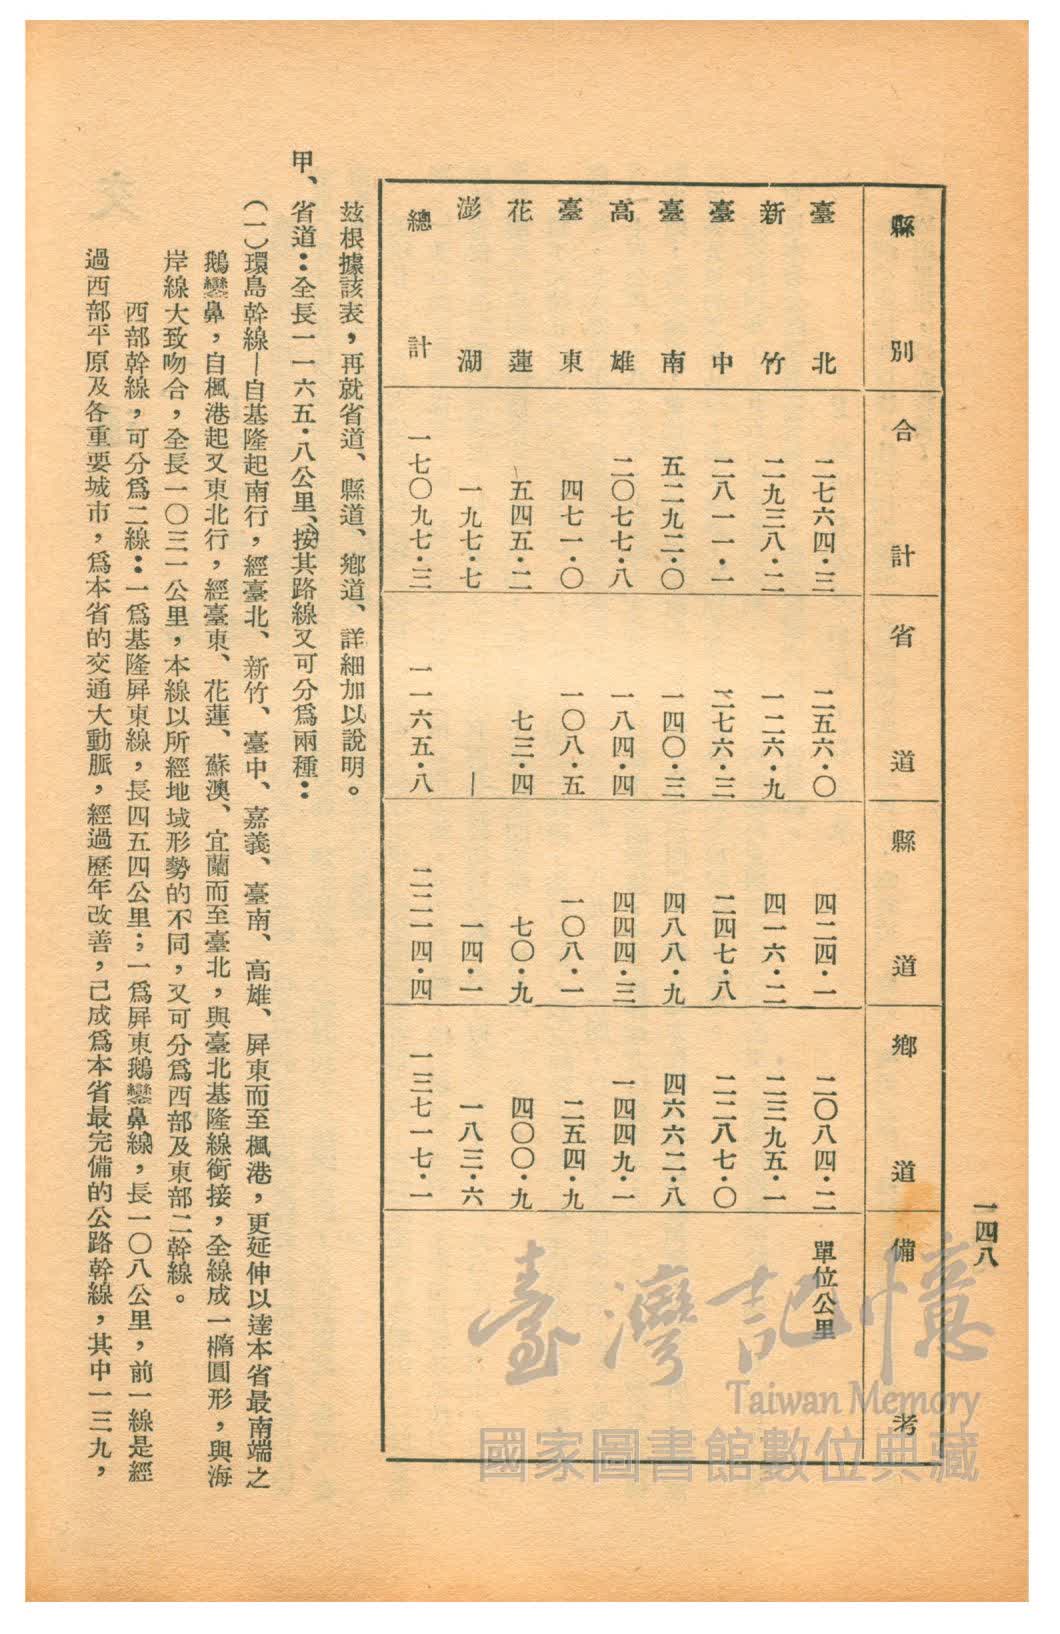 一四八
縣別 合計 省道 縣道 鄉道 備考
臺北 二七六四・三 二五六・〇 四二四・一 二〇八四・二 單位公里
新竹 二九三八・二 一二六・九 四一六・二 二三九五・一
臺中 二八一一・一 二七六・三 二四七・八 二二八七・〇
臺南 五二九二・〇 一四〇・三 四八八・九 四六六二・八
高雄 二〇七七・八 一八四・四 四四四・三 一四四九・一
臺東 四七一・〇 一〇八・五 一〇八・一 二五四・九
花蓮 五四五・二 七三・四 七〇・九 四〇〇・九
澎湖 一九七・七 — 一四・一 一八三・六
總計 一七〇九七・三 一一六五・八 二二一四・四 一三七一七・一
玆根據該表，再就省道、縣道、鄉道、詳細加以說明。
甲、省道：全長一一六五・八公里、按其路線又可分爲兩種：
（一）環島幹線—自基隆起南行，經臺北、新竹、臺中、嘉義、臺南、高雄、屛東而至楓港，更延伸以達本省最南端之
鵝鑾鼻，自楓港起又東北行，經臺東、花蓮、蘇澳、宜蘭而至臺北，與臺北基隆線銜接，全線成一橢圓形，與海
岸線大致吻合，全長一〇三一公里，本線以所經地域形勢的不同，又可分爲西部及東部二幹線。
西部幹線，可分爲二線：一爲基隆屛東線，長四五四公里；一爲屛東鵝鑾鼻線，長一〇八公里，前一線是經
過西部平原及各重要城市，爲本省的交通大動脈，經過歷年改善，己成爲本省最完備的公路幹線，其中一三九，
臺灣記憶
Taiwan Memory
國家圖書館數位典藏